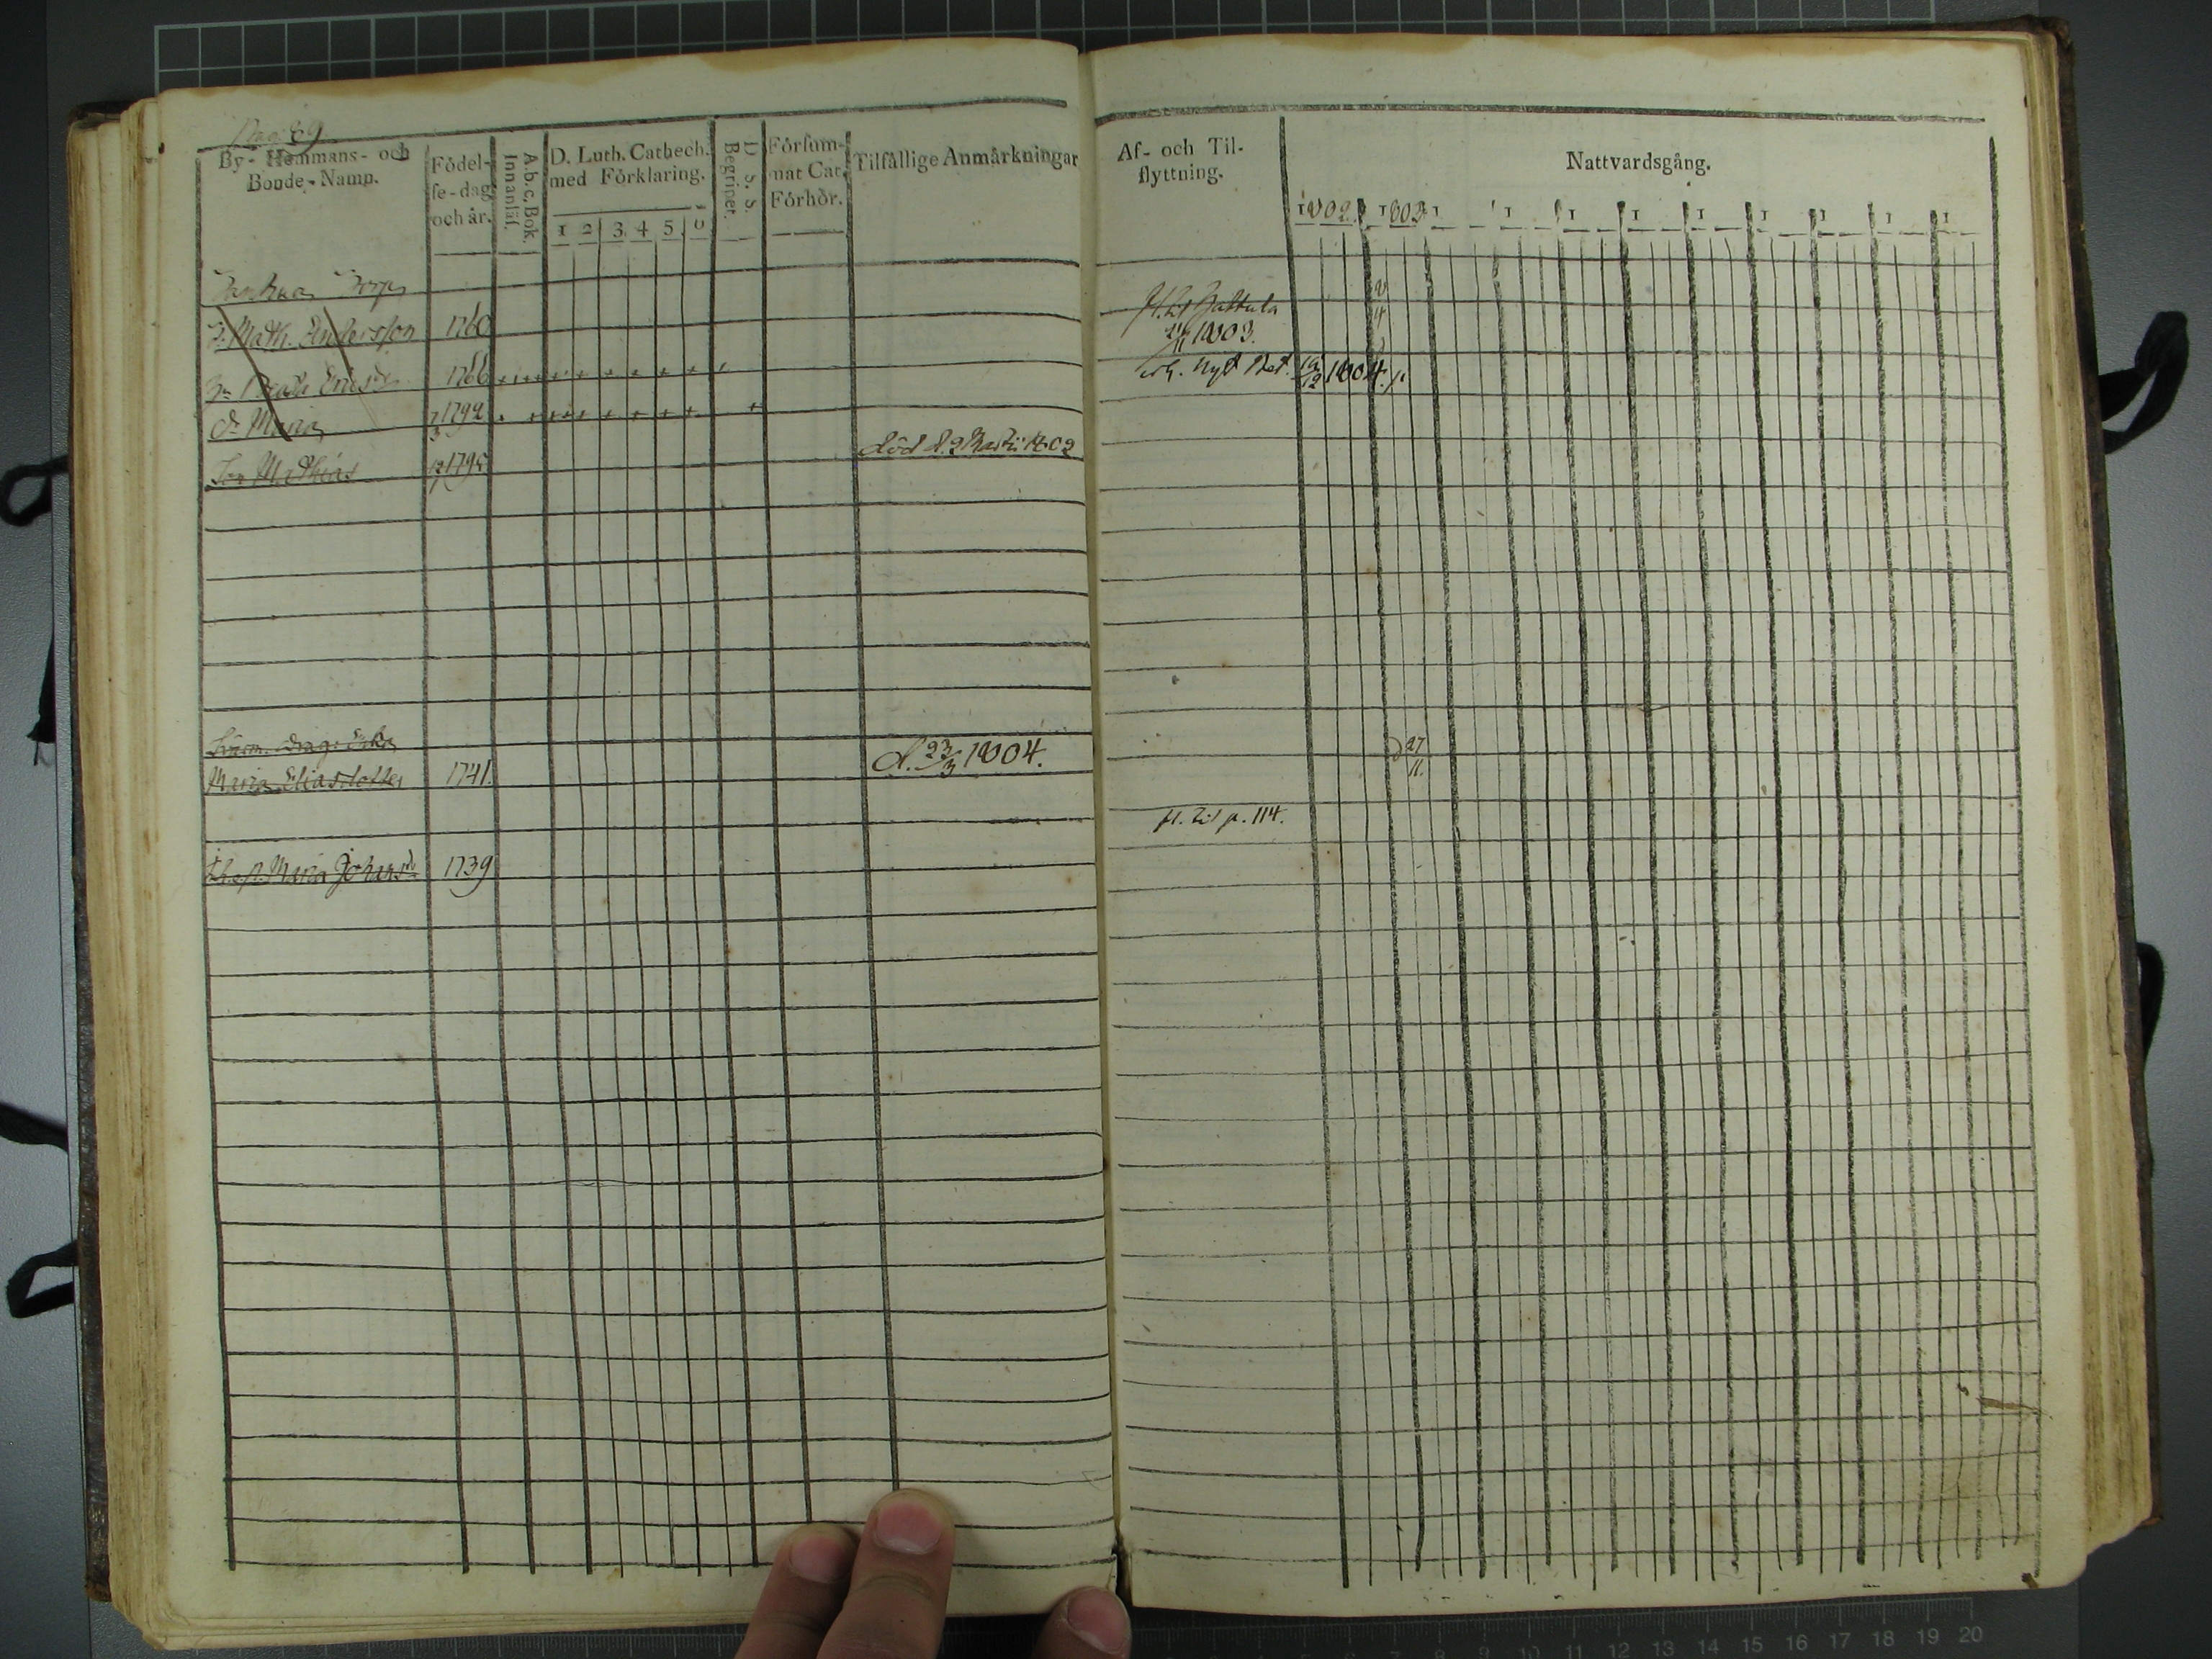 Pag. 89.
By- Hemmans- och
Bonde-Namn.
Födel-
se-dag
och år.
A.b.c. Bok.
Innanläs.
D. Luth. Cathech.
med Förklaring.
1 2 3 4 5 6
D. S. S.
Begripet.
Försum-
mat Cat.
Förhör.
Tilfällige Anmärkningar
Torp
Math. Andersson 1760
Ericsdr 1766
dr Maria 1792
Son Mathias 1795 död d. 2 Martii 1802
Maria Eliasdotter 1741. d. 23/3 1804.
Maria Johansdr 1739
Af- och Til-
flyttning.
Nattvardsgång.
1802. 1803. 1 1 1 1 1 1 1 1 1
fl. til Hattula
1803.
nytt Bet. 1804.
27
11.
fl. til p. 114.
8 9 10 11 12 13 14 15 16 17 18 19 20